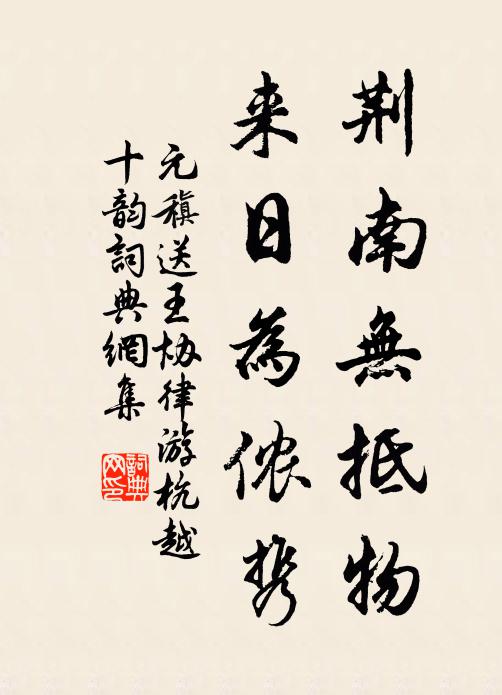 荆南無抵物
来日為侬携
元稹送王协律游杭越
十韵詞典網集
詞典网印